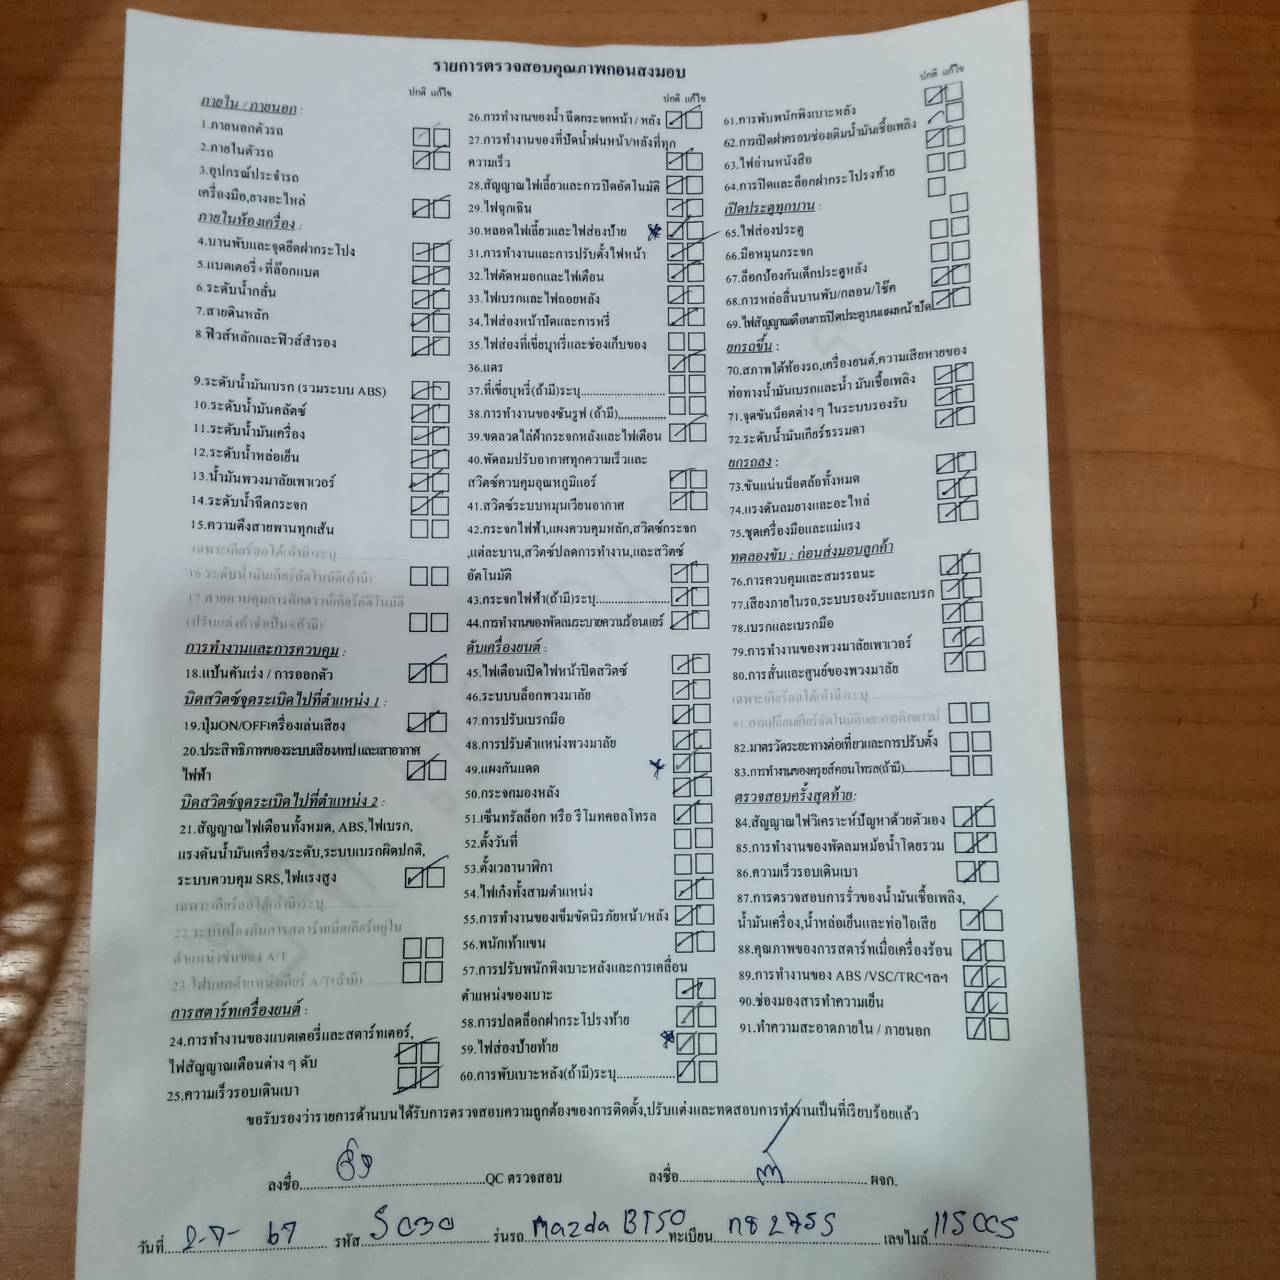 รายการตรวจสอบคุณภาพก่อนส่งมอบ
ปกติ แก้ไข
ภายใน / ภายนอก :
1.ภายนอกตัวรถ
2.ภายในตัวรถ
3.อุปกรณ์ประจำรถ
เครื่องมือ,ยางอะไหล่
ภายในห้องเครื่อง :
4.บานพับและจุดยึดฝากระโปง
5.แบตเตอรี่+ที่ล็อกแบต
6.ระดับน้ำกลั่น
7.สายดินหลัก
8.ฟิวส์หลักและฟิวส์สำรอง
9.ระดับน้ำมันเบรก (รวมระบบ ABS)
10.ระดับน้ำมันคลัตซ์
11.ระดับน้ำมันเครื่อง
12.ระดับน้ำหล่อเย็น
13.น้ำมันพวงมาลัยเพาเวอร์
14.ระดับน้ำฉีดกระจก
15.ความตึงสายพานทุกเส้น
เฉพาะเกียร์ออโต้(ถ้ามี)ระบุ
16.ระดับน้ำมันเกียร์อัตโนมัติ(ถ้ามี)
17.สายควบคุมการคิกดาวน์เกียร์อัติโนมัติ
(ปรับแต่งถ้าจำเป็น)(ถ้ามี)
การทำงานและการควบคุม :
18.แป้นคันเร่ง / การออกตัว
บิดสวิตซ์จุดระเบิดไปที่ตำแหน่ง 1 :
19.ปุ่มON/OFFเครื่องเล่นเสียง
20.ประสิทธิภาพของระบบเสียง\เทป และเสาอากาศ
ไฟฟ้า
บิดสวิตซ์จุดระเบิดไปที่ตำแหน่ง 2 :
21.สัญญาณไฟเตือนทั้งหมด, ABS,ไฟเบรก,
แรงดันน้ำมันเครื่อง/ระดับ,ระบบเบรกผิดปกติ,
ระบบควบคุม SRS,ไฟแรงสูง
เฉพาะเกียร์ออโต้(ถ้ามี)ระบุ
22.ระบบป้องกันการสตาร์ทเมื่อเกียร์อยู่ใน
ตำแหน่งขับของ A/T
23.ไฟบอกตำแหน่งเกียร์ A/T(ถ้ามี)
การสตาร์ทเครื่องยนต์ :
24.การทำงานของแบตเตอรี่และสตาร์ทเตอร์,
ไฟสัญญาณเตือนต่าง ๆ ดับ
25.ความเร็วรอบเดินเบา
ปกติ แก้ไข
26.การทำงานของน้ำ ฉีดกระจกหน้า / หลัง
27.การทำงานของที่ปัดน้ำฝนหน้า/หลังที่ทุก
ความเร็ว
28.สัญญาณไฟเลี้ยวและการปิดอัตโนมัติ
29.ไฟฉุกเฉิน
30.หลอดไฟเลี้ยวและไฟส่องป้าย
31.การทำงานและการปรับตั้งไฟหน้า
32.ไฟตัดหมอกและไฟเตือน
33.ไฟเบรกและไฟถอยหลัง
34.ไฟส่องหน้าปัดและการหรี่
35.ไฟส่องที่เขี่ยบุหรี่และช่องเก็บของ
36.แตร
37.ที่เขี่ยบุหรี่(ถ้ามี)ระบุ
38.การทำงานของซันรูฟ (ถ้ามี)
39.ขดลวดไล่ฝ้ากระจกหลังและไฟเตือน
40.พัดลมปรับอากาศทุกความเร็วและ
สวิตช์ควบคุมอุณหภูมิแอร์
41.สวิตซ์ระบบหมุนเวียนอากาศ
42.กระจกไฟฟ้า,แผงควบคุมหลัก,สวิตซ์กระจก
,แต่ละบาน,สวิตซ์ปลดการทำงาน,และสวิตซ์
อัตโนมัติ
43.กระจกไฟฟ้า(ถ้ามี)ระบุ
44.การทำงานของพัดลมระบายความร้อนแอร์
ดับเครื่องยนต์ :
45.ไฟเตือนเปิดไฟหน้าปิดสวิตซ์
46.ระบบบล็อกพวงมาลัย
47.การปรับเบรกมือ
48.การปรับตำแหน่งพวงมาลัย
49.แผงกันแดด
50.กระจกมองหลัง
51.เซ็นทรัลล็อก หรือ รีโมทคอลโทรล
52.ตั้งวันที่
53.ตั้งเวลานาฬิกา
54.ไฟเก๋งทั้งสามตำแหน่ง
55.การทำงานของเข็มขัดนิรภัยหน้า/หลัง
56.พนักเท้าแขน
57.การปรับพนักพิงเบาะหลังและการเคลื่อน
ตำแหน่งของเบาะ
58.การปลดล็อกฝากระโปรงท้าย
59.ไฟส่องป้ายท้าย
60.การพับเบาะหลัง(ถ้ามี)ระบุ
ปกติ แก้ไข
61.การพับพนักพิงเบาะหลัง
62.การเปิดฝาครอบช่องเติมน้ำมันเชื้อเพลิง
63.ไฟอ่านหนังสือ
64.การปิดและล็อกฝากระโปรงท้าย
เปิดประตูทุกบาน :
65.ไฟส่องประตู
66.มือหมุนกระจก
67.ล็อกป้องกันเด็กประตูหลัง
68.การหล่อลื่นบานพับ/กลอน/โช๊ค
69.ไฟสัญญาณเตือนการปิดประตูบนแผงหน้าปัด
ยกรถขึ้น :
70.สภาพใต้ท้องรถ,เครื่องยนต์,ความเสียหายของ
ท่อทางน้ำมันเบรกและน้ำ มันเชื้อเพลิง
71.จุดขันน็อตต่าง ๆ ในระบบรองรับ
72.ระดับน้ำมันเกียร์ธรรมดา
ยกรถลง :
73.ขันแน่นน็อตล้อทั้งหมด
74.แรงดันลมยางและอะไหล่
75.ชุดเครื่องมือและแม่แรง
ทดลองขับ : ก่อนส่งมอบลูกค้า
76.การควบคุมและสมรรถนะ
77.เสียงภายในรถ,ระบบรองรับและเบรก
78.เบรกและเบรกมือ
79.การทำงานของพวงมาลัยเพาเวอร์
80.การสั่นและศูนย์ของพวงมาลัย
เฉพาะเกียร์ออโต้(ถ้ามี)ระบุ
81.การเปลี่ยนเกียร์อัตโนมัติและการคิกดาวน์
82.มาตรวัดระยะทางต่อเที่ยวและการปรับตั้ง
83.การทำงานของครุยส์คอนโทรล(ถ้ามี)
ตรวจสอบครั้งสุดท้าย:
84.สัญญาณไฟวิเคราะห์ปัญหาด้วยตัวเอง
85.การทำงานของพัดลมหม้อน้ำโดยรวม
86.ความเร็วรอบเดินเบา
87.การตรวจสอบการรั่วของน้ำมันเชื้อเพลิง,
น้ำมันเครื่อง,น้ำหล่อเย็นและท่อไอเสีย
88.คุณภาพของการสตาร์ทเมื่อเครื่องร้อน
89.การทำงานของ ABS /VSC/TRCฯลฯ
90.ช่องมองสารทำความเย็น
91.ทำความสะอาดภายใน / ภายนอก
ขอรับรองว่ารายการด้านบนได้รับการตรวจสอบความถูกต้องของการติดตั้ง,ปรับแต่งและทดสอบการทำงานเป็นที่เรียบร้อยแล้ว
ลงชื่อ QC ตรวจสอบ ลงชื่อ ผจก.
วันที่ 2-7- 67 รหัส 5030 รุ่นรถ Mazda BT50 ทะเบียน กธ 2755 เลขไมล์ 115005